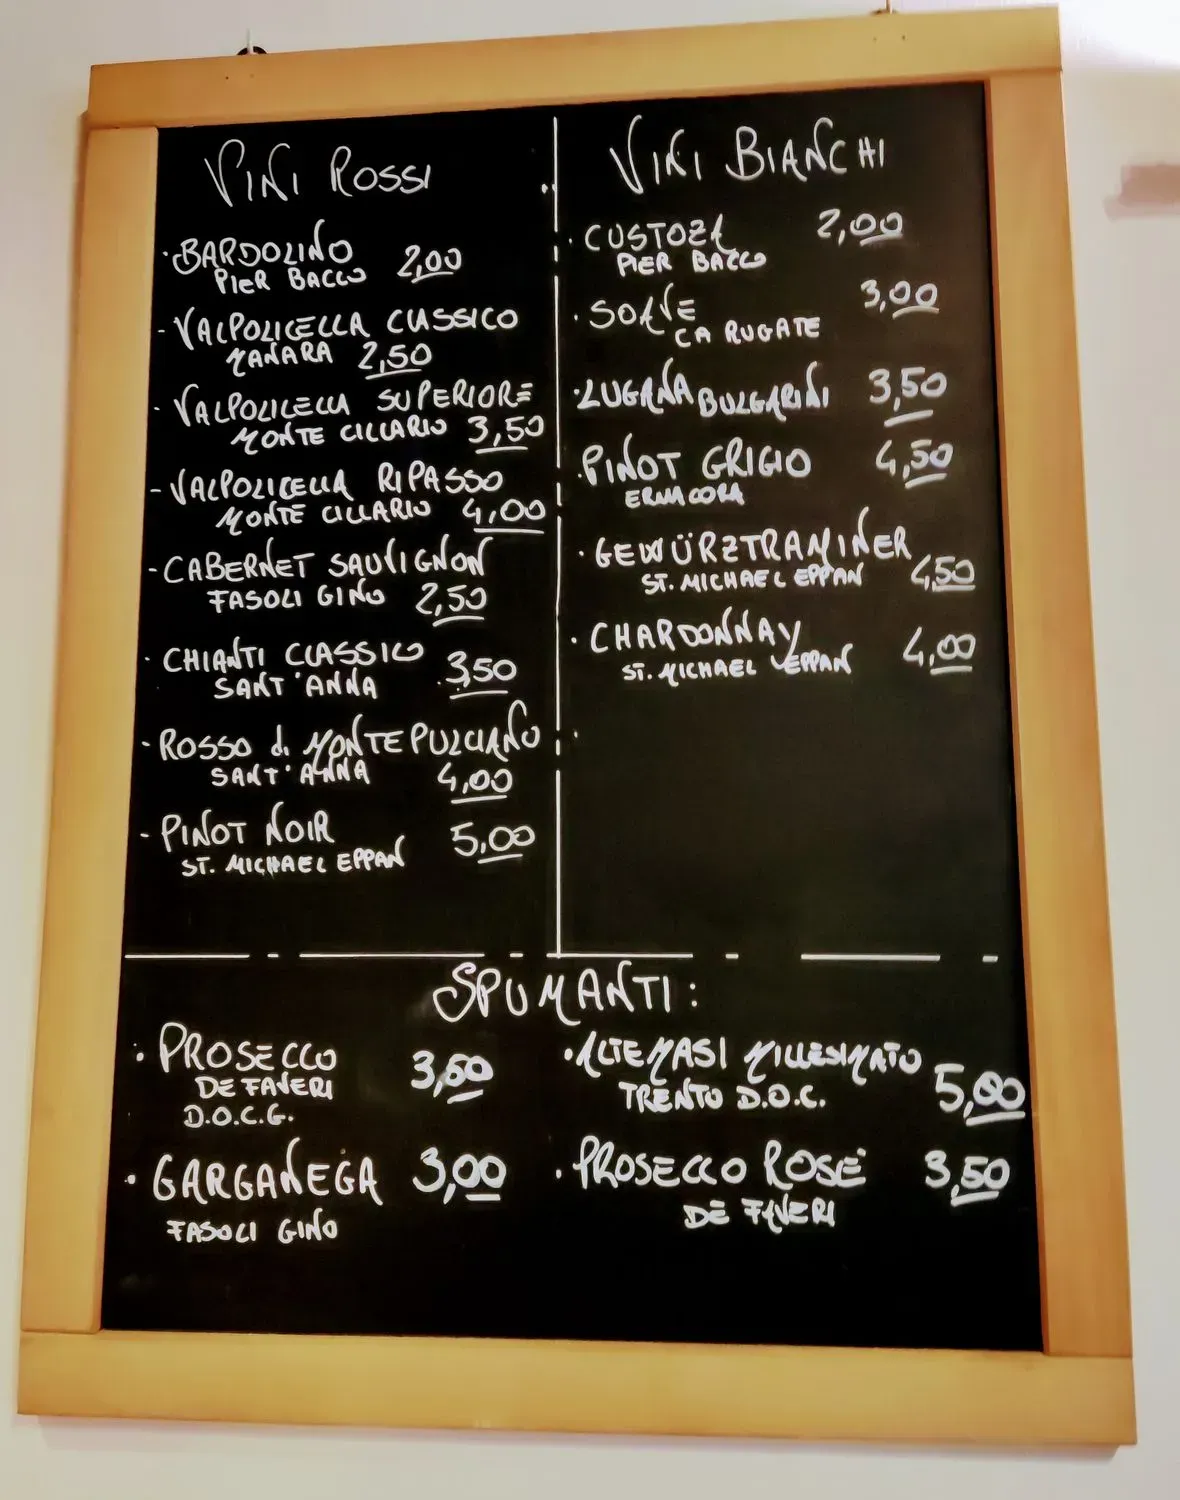 VINI ROSSI
· BARDOLINO
PIER BACCO 2,00
- VALPOLICELLA CLASSICO
ZANARA 2,50
- VALPOLICELLA SUPERIORE
MONTE CILLARIO 3,50
- VALPOLICELLA RIPASSO
MONTE CILLARIO 4,00
- CABERNET SAUVIGNON
FASOLI GINO 2,50
· CHIANTI CLASSICO 3,50
SANT'ANNA
- ROSSO di MONTEPULCIANO
SANT'ANNA 4,00
- PINOT NOIR 5,00
ST. MICHAEL EPPAN
VINI BIANCHI
· CUSTOZA 2,00
PIER BACCO
· SOAVE 3,00
CA RUGATE
· LUGANA BULGARINI 3,50
· PINOT GRIGIO 4,50
ERMACORA
· GEWÜRZTRAMINER
ST. MICHAEL EPPAN 4,50
· CHARDONNAY 4,00
ST. MICHAEL EPPAN
SPUMANTI:
· PROSECCO 3,50
DE FAVERI
D.O.C.G.
· GARGANEGA 3,00
FASOLI GINO
· ALTEMASI MILLESIMATO
TRENTO D.O.C. 5,00
· PROSECCO ROSÉ 3,50
DE FAVERI